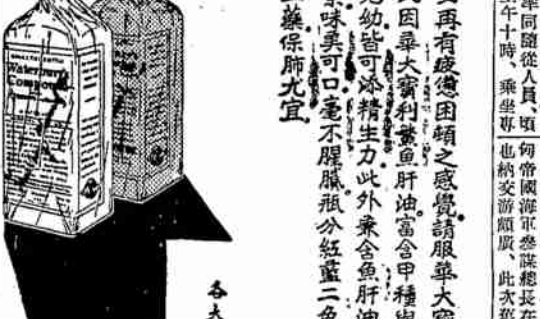 準同隨從人員、頃
午十時、乘坐專
匈帝國海軍參謀總長在
也納交游頗廣、此次
再有疲憊困頓之感覺請服華大
因華大寶利鱉魚肝油富含甲種
幼皆可添精生力此外兼含魚肝油
味美可口毫不腥膩瓶分紅藍二色
藥保肺尤宜
各大
Waterbury's
Compound